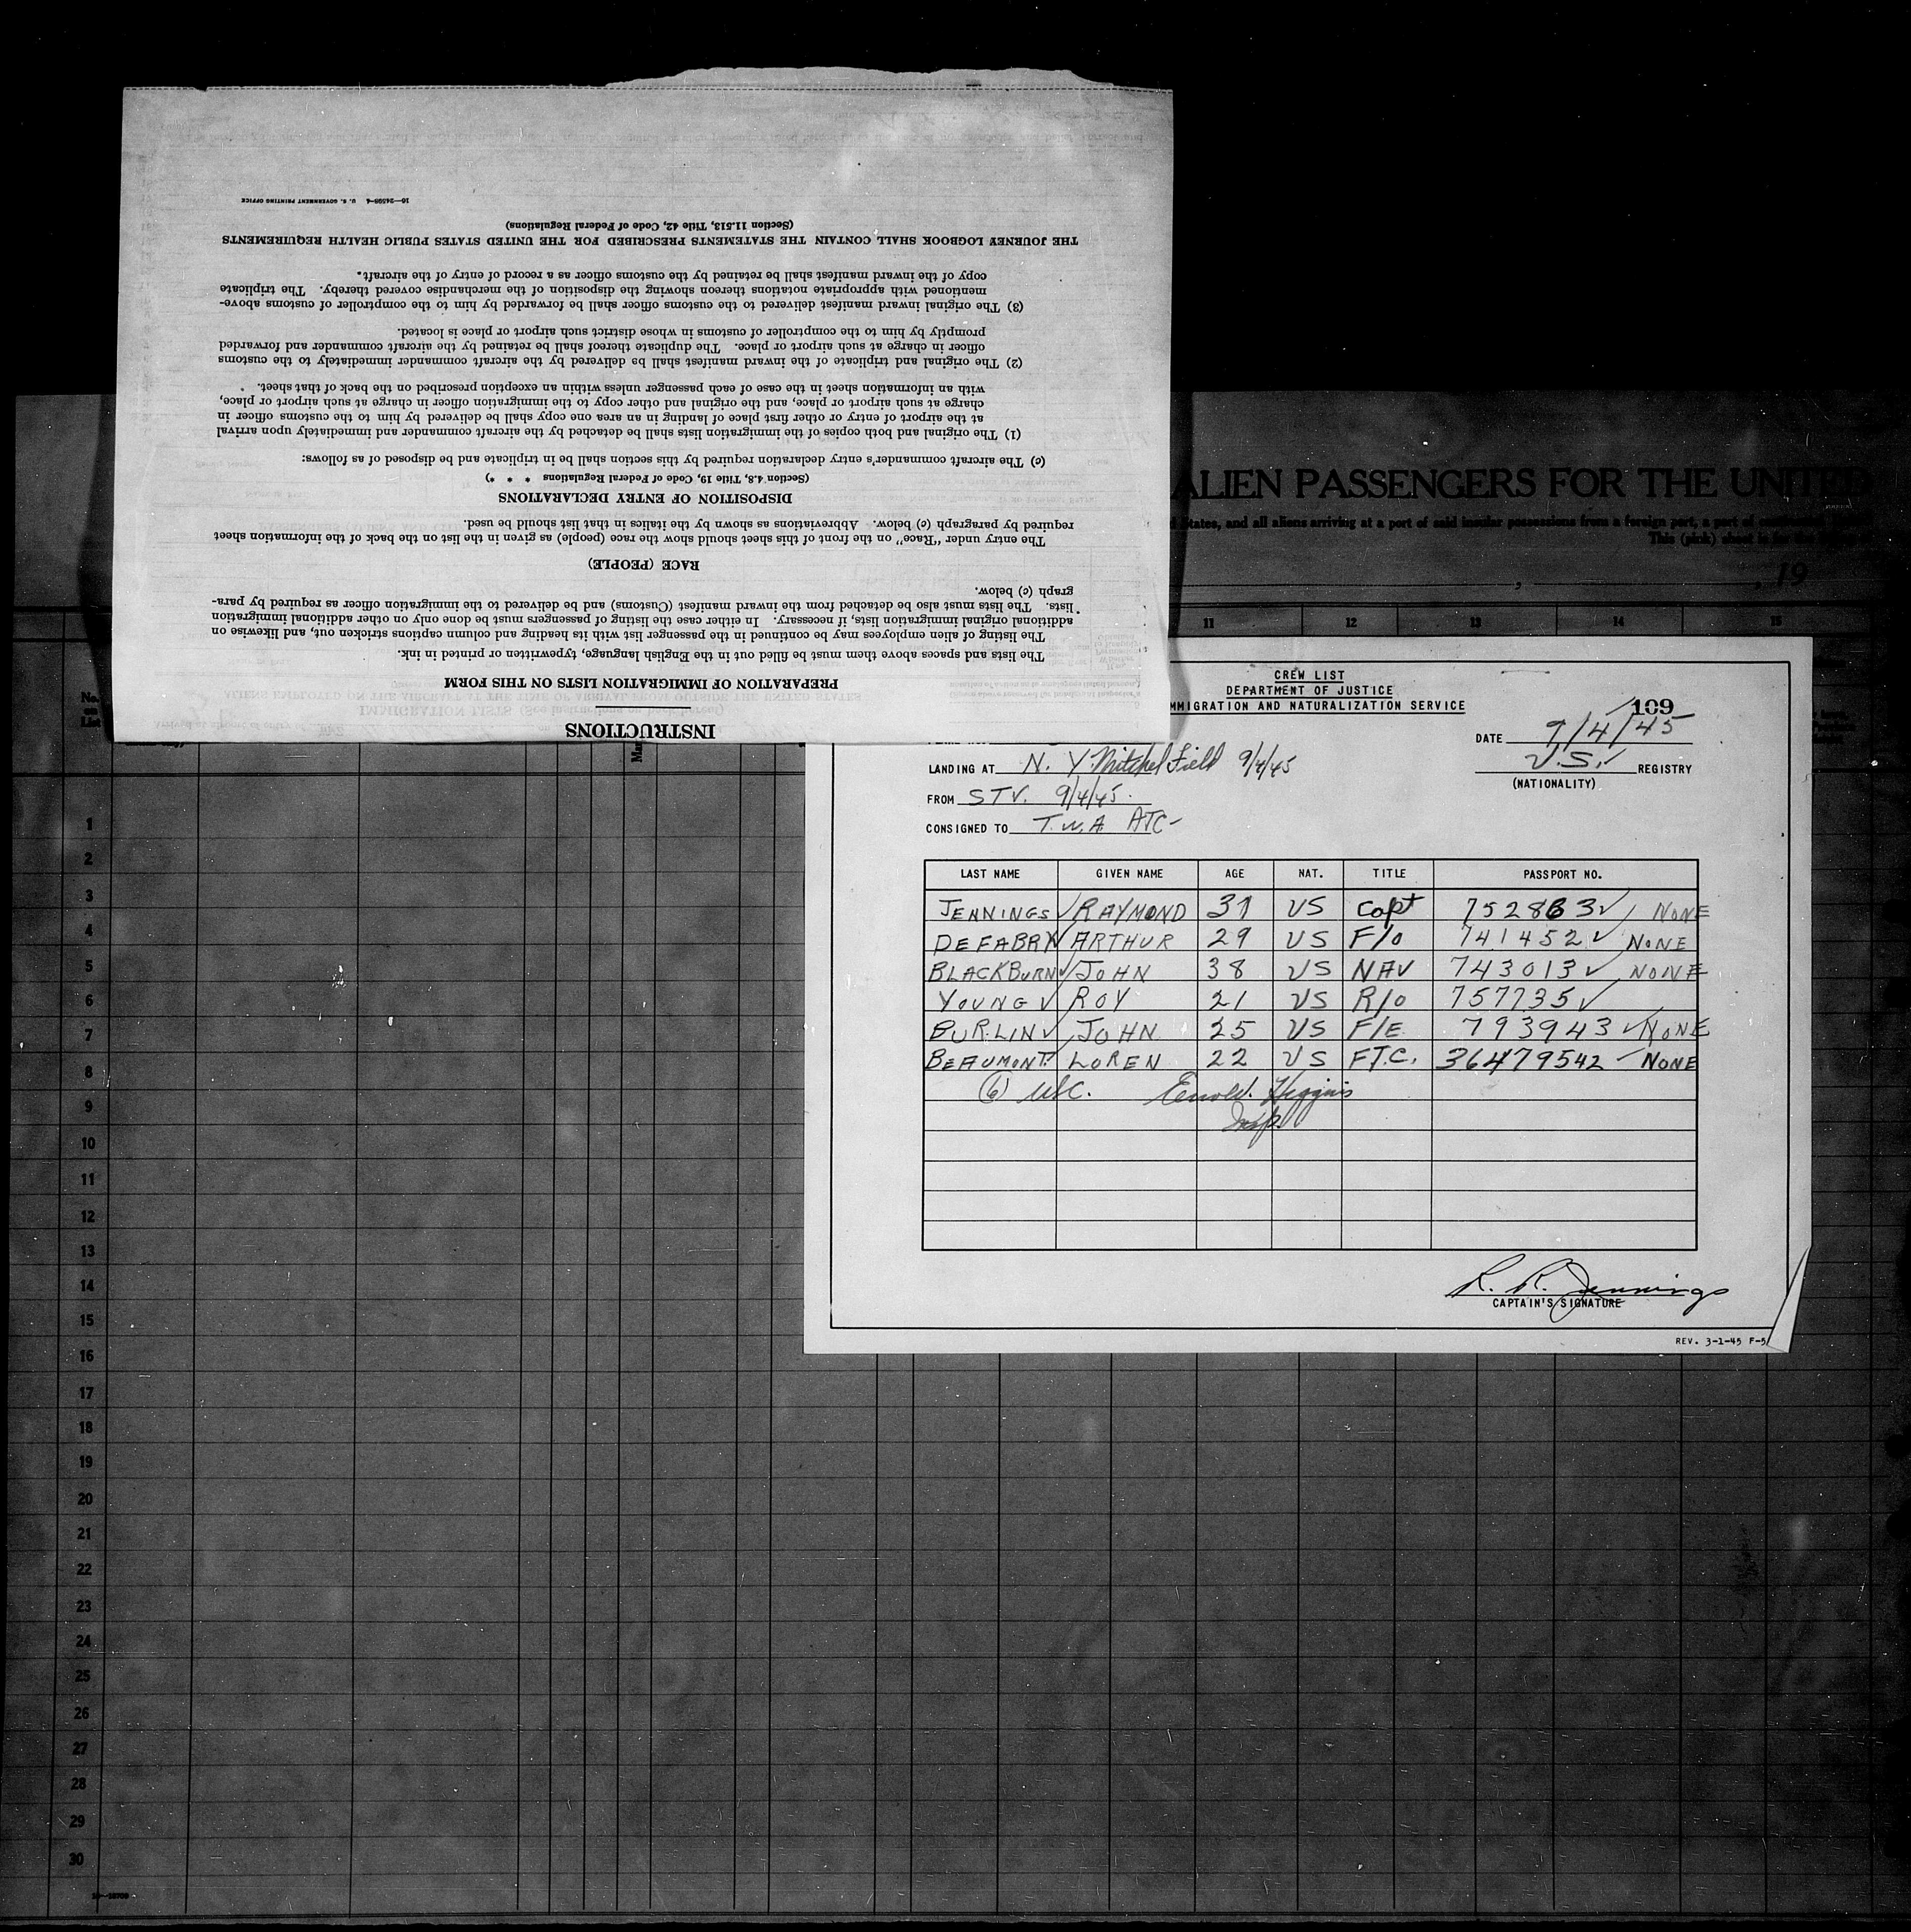 INSTRUCTIONS
PREPARATION OF IMMIGRATION LISTS ON THIS FORM
The lists and spaces above them must be filled out in the English language, typewritten or printed in ink.
The listing of alien employees may be continued in the passenger list with its heading and column captions stricken out, and likewise on
additional original immigration lists, if necessary. In either case the listing of passengers must be done only on other additional immigration
lists. The lists must also be detached from the inward manifest (Customs) and be delivered to the immigration officer as required by para-
graph (c) below.
RACE (PEOPLE)
The entry under "Race" on the front of this sheet should show the race (people) as given in the list on the back of the information sheet
required by paragraph (c) below. Abbreviations as shown by the italics in that list should be used.
DISPOSITION OF ENTRY DECLARATIONS
(Section 4.8, Title 19, Code of Federal Regulations * * *)
(c) The aircraft commander's entry declaration required by this section shall be in triplicate and be disposed of as follows:
(1) The original and both copies of the immigration lists shall be detached by the aircraft commander and immediately upon arrival
at the airport of entry or other first place of landing in an area one copy shall be delivered by him to the customs officer in
charge at such airport or place, and the original and other copy to the immigration officer in charge at such airport or place,
with an information sheet in the case of each passenger unless within an exception prescribed on the back of that sheet.
(2) The original and triplicate of the inward manifest shall be delivered by the aircraft commander immediately to the customs
officer in charge at such airport or place. The duplicate thereof shall be retained by the aircraft commander and forwarded
promptly by him to the comptroller of customs in whose district such airport or place is located.
(3) The original inward manifest delivered to the customs officer shall be forwarded by him to the comptroller of customs above-
mentioned with appropriate notations thereon showing the disposition of the merchandise covered thereby. The triplicate
copy of the inward manifest shall be retained by the customs officer as a record of entry of the aircraft.
THE JOURNEY LOGBOOK SHALL CONTAIN THE STATEMENTS PRESCRIBED FOR THE UNITED STATES PUBLIC HEALTH REQUIREMENTS
(Section 11.513, Title 42, Code of Federal Regulations)
16—24598-4 U. S. GOVERNMENT PRINTING OFFICE
ALIEN PASSENGERS FOR THE UNITED
States, and all aliens arriving at a port of said insular possessions from a foreign port, a port of
This (pink) sheet is for the
, 19
11 12 13 14 15
CREW LIST
DEPARTMENT OF JUSTICE
MMIGRATION AND NATURALIZATION SERVICE
109
DATE 9/4/45
LANDING AT N. Y. Mitchel Field 9/4/45
U.S. REGISTRY
(NATIONALITY)
FROM STV. 9/4/45.
CONSIGNED TO T.W.A. ATC-
LAST NAME GIVEN NAME AGE NAT. TITLE PASSPORT NO.
JENNINGS RAYMOND 31 US Capt 752863 NONE
DEFABRY ARTHUR 29 US F/O 741452 NONE
BLACKBURN JOHN 38 US NAV 743013 NONE
YOUNG ROY 21 US R/O 757735
BURLIN JOHN 25 US F/E 793943 NONE
BEAUMONT LOREN 22 US F.T.C. 36479542 NONE
(6) USC. Higgins
Insp.
R. R. Jennings
CAPTAIN'S SIGNATURE
REV. 3-1-45 F-5
1
2
3
4
5
6
7
8
9
10
11
12
13
14
15
16
17
18
19
20
21
22
23
24
25
26
27
28
29
30